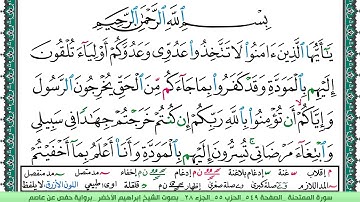 بِسْمِ ٱللَّهِ ٱلرَّحْمَٰنِ ٱلرَّحِيمِ
يَٰٓأَيُّهَا ٱلَّذِينَ ءَامَنُوا۟ لَا تَتَّخِذُوا۟ عَدُوِّى وَعَدُوَّكُمْ أَوْلِيَآءَ تُلْقُونَ
إِلَيْهِم بِٱلْمَوَدَّةِ وَقَدْ كَفَرُوا۟ بِمَا جَآءَكُم مِّنَ ٱلْحَقِّ يُخْرِجُونَ ٱلرَّسُولَ
وَإِيَّاكُمْ أَن تُؤْمِنُوا۟ بِٱللَّهِ رَبِّكُمْ إِن كُنتُمْ خَرَجْتُمْ جِهَٰدًا فِى سَبِيلِى
وَٱبْتِغَآءَ مَرْضَاتِى تُسِرُّونَ إِلَيْهِم بِٱلْمَوَدَّةِ وَأَنَا۠ أَعْلَمُ بِمَآ أَخْفَيْتُمْ
إقلاب غنة إدغام بلاغنة ن م إخفاء مد متصل مد منفصل
المد اللازم صلة كبرى صلة صغرى إظهار ن م إدغام اوى طبيعي اللون الأزرق لا يلفظ
سورة الممتحنة الصفحة ٥٤٩ الحزب ٥٥ الجزء ٢٨ بصوت الشيخ إبراهيم الأخضر رواية حفص عن عاصم